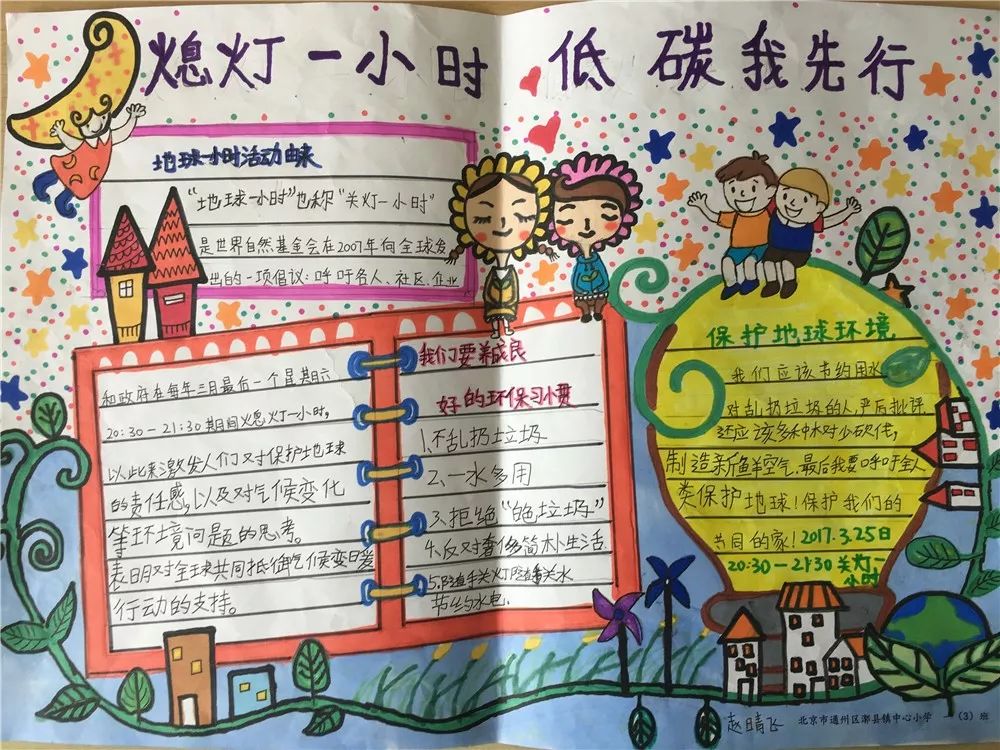 熄灯一小时 低碳我先行
地球一小时活动由来
“地球一小时”也称“关灯一小时”
是世界自然基金会在2007年向全球发
出的一项倡议:呼吁名人、社区、企业
和政府在每年三月最后一个星期六
20:30-21:30期间熄灯一小时,
以此来激发人们对保护地球
的责任感,以及对气候变化
等环境问题的思考。
表明对全球共同抵御气候变暖
行动的支持。
我们要养成良
好的环保习惯
1.不乱扔垃圾
2.一水多用
3.拒绝“白色垃圾”
4.反对奢侈简朴生活.
5.随手关灯随手关水
节约水电.
保护地球环境
我们应该节约用水
对乱扔垃圾的人,严后批评.
还应该多种树少砍伐,
制造新鲜空气.最后我要呼吁全人
类保护地球!保护我们的
共同的家!2017.3.25日
20:30-21:30关灯一
小时
赵晴飞 北京市通州区漷县镇中心小学 一(3)班